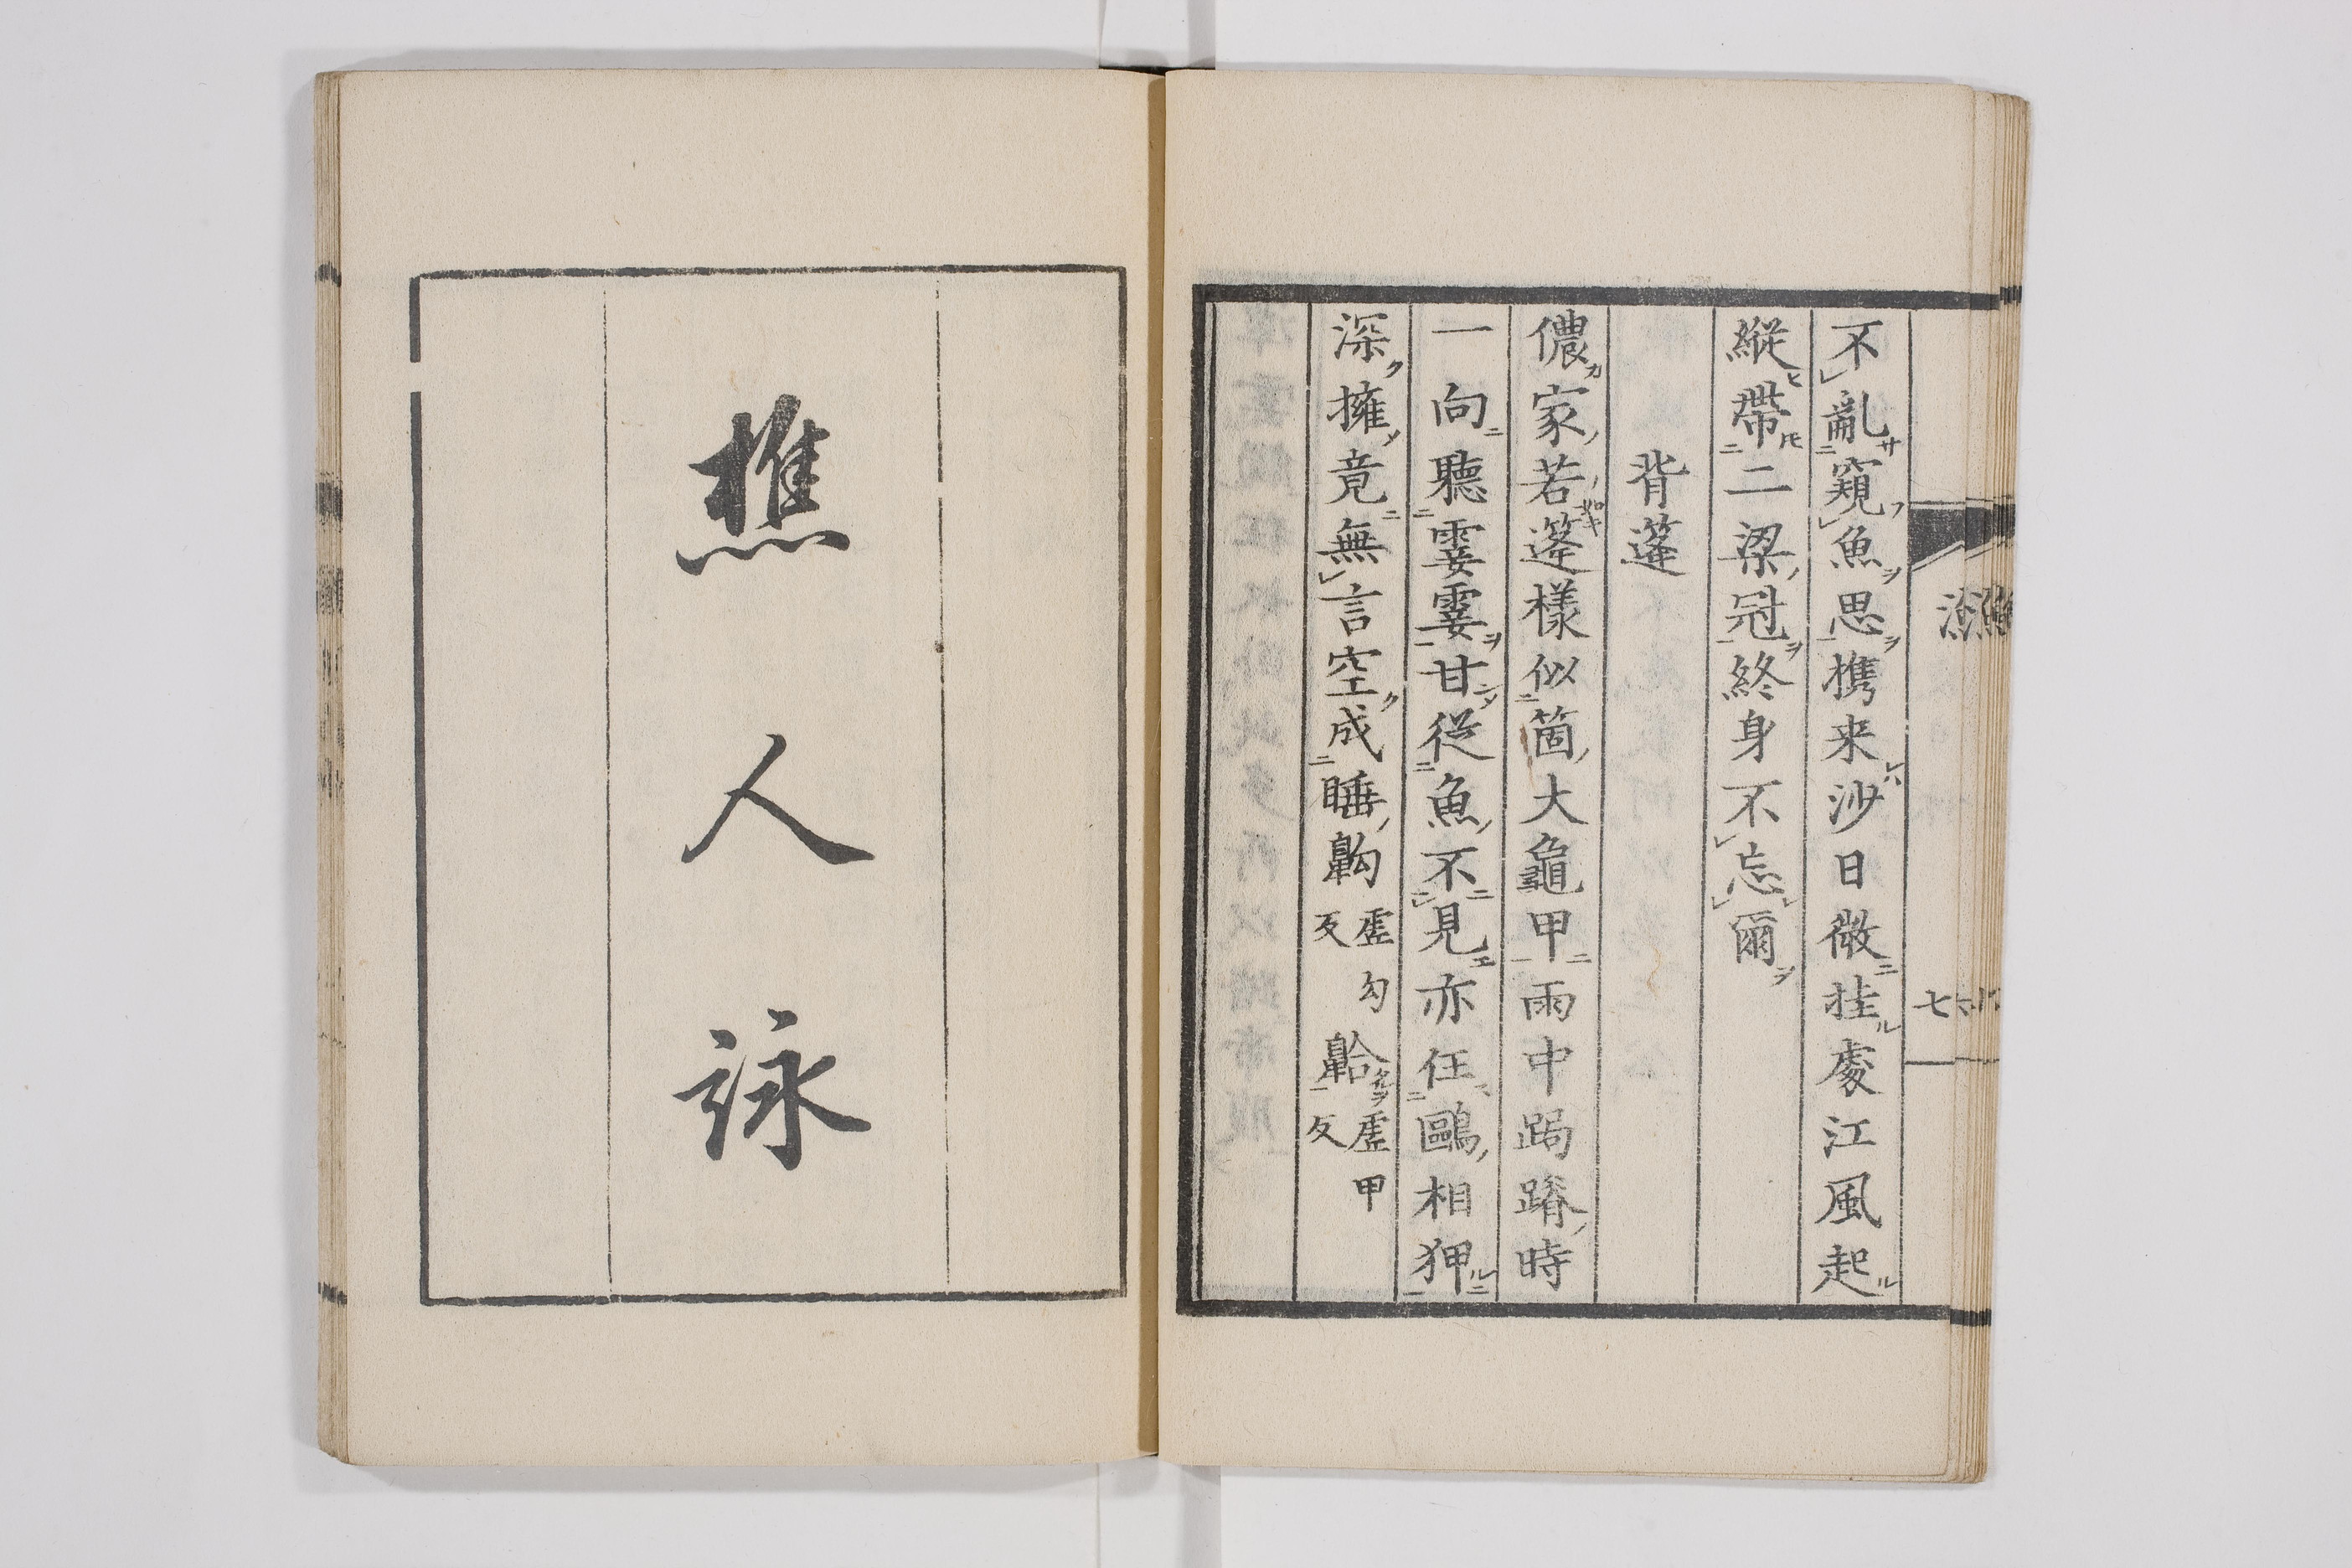 不亂窺魚思携来沙日微挂處江風起
縦帶二梁冠終身不忘爾
背蓬
儂家若蓬樣似箇大龜甲雨中跼蹐時
一向聽霎霎甘從魚不見亦任鷗相狎
深擁竟無言空成睡齁虛勾反䶎虛甲反
漁
七
樵人詠